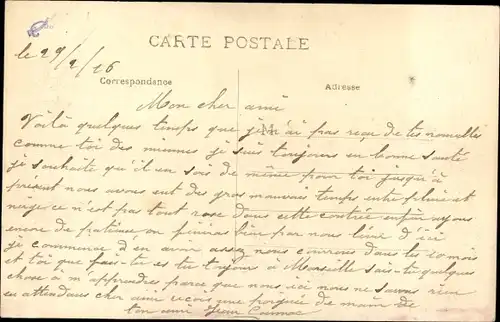 CARTE POSTALE
le 29/2/16
Correspondance
Adresse
Mon cher ami
Voilà quelques temps que je n'ai pas reçu de tes nouvelles
comme toi des miennes je suis toujours en bonne santé
je souhaite qu'il en soi de même pour toi jusqu'à
présent nous avons eut des gros mauvais temps entre pluie et
neige ce n'est pas tout rose dans cette contrée enfin ayons
encore de patience on finira bien par nous tiré d'ici
je commence d'en avoir assez nous courons dans les 20 mois
et toi que fais-tu es tu toujours à Marseille sais-tu quelques
chose à m'apprendres parce que nous ici nous ne savons rien
en attendans cher ami reçois une poignée de main de
ton ami Jean